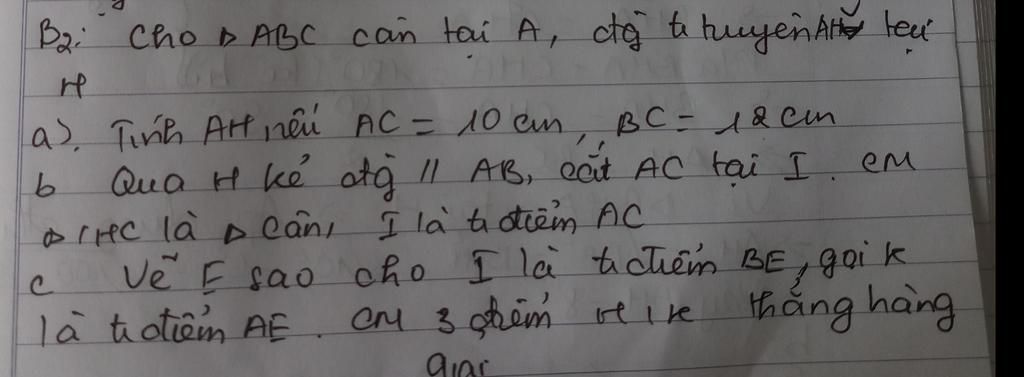 B2: Cho ▷ ABC cân tại A, đg tr tuyến AH tại
H
a). Tính AH, nếu AC = 10 cm, BC = 12 cm
b Qua H kẻ đtg // AB, cắt AC tại I. CM
▷ IHC là ▷ cân, I là tr điểm AC
c Vẽ E sao cho I là tr điểm BE, gọi K
là tr điểm AE. CM 3 điểm H I K thẳng hàng
giải